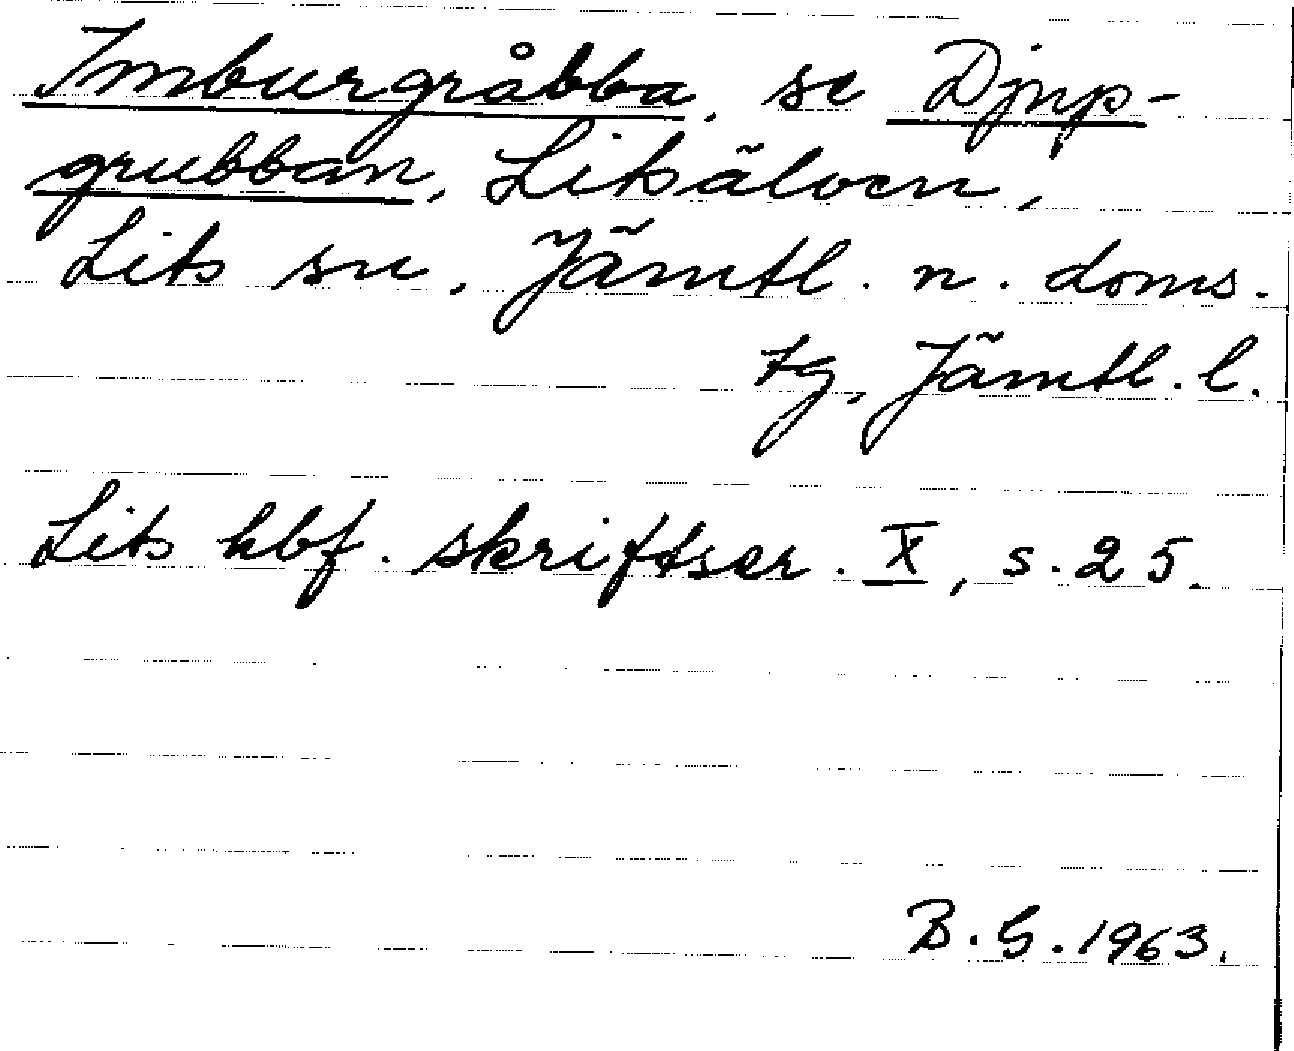 Imburgråbba, se Djup-
grubban, Litsälven,
Lits sn, Jämtl. n. doms.
tg, Jämtl. l.
Lits hbf. skriftser. X, s. 25.
B. G. 1963.